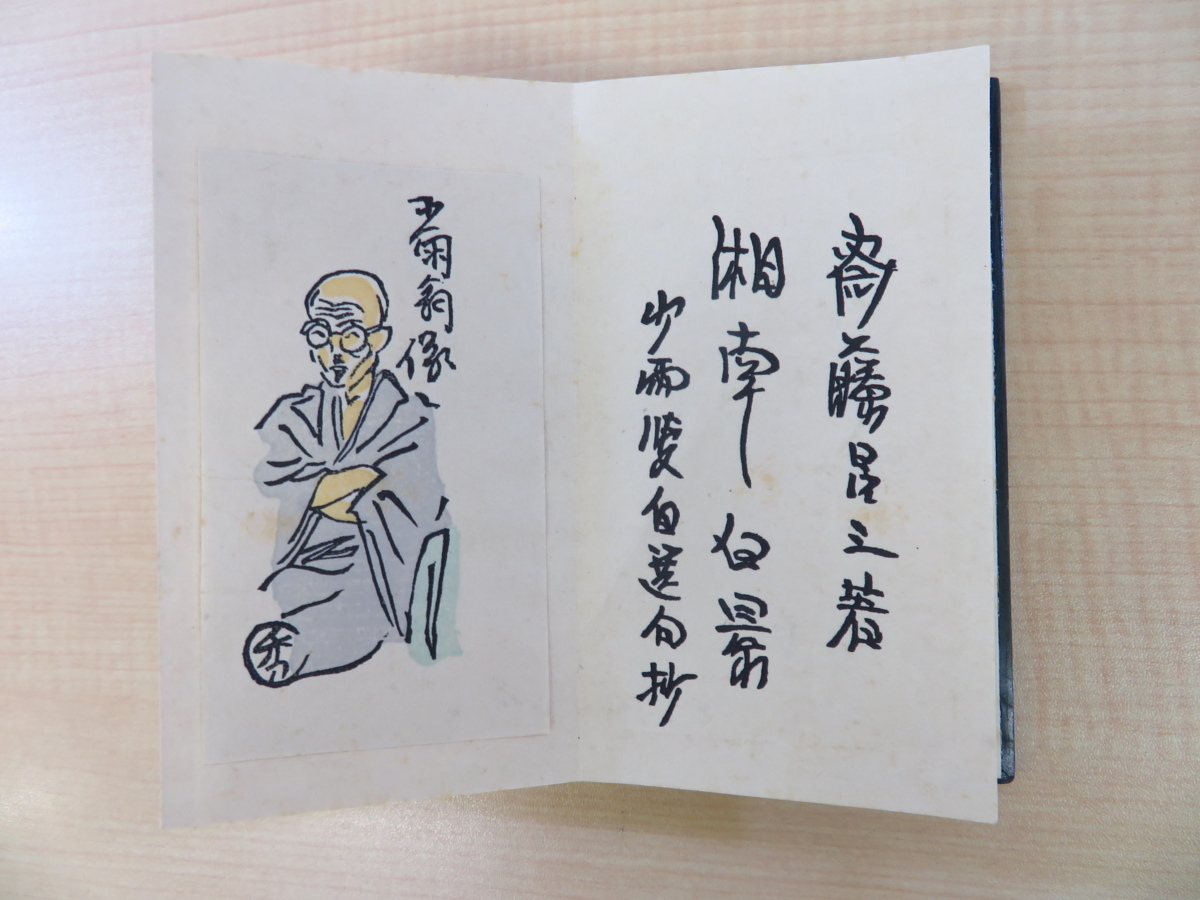 齋藤昌三著
湘南
少雨叟自選句抄
少雨翁像
秀